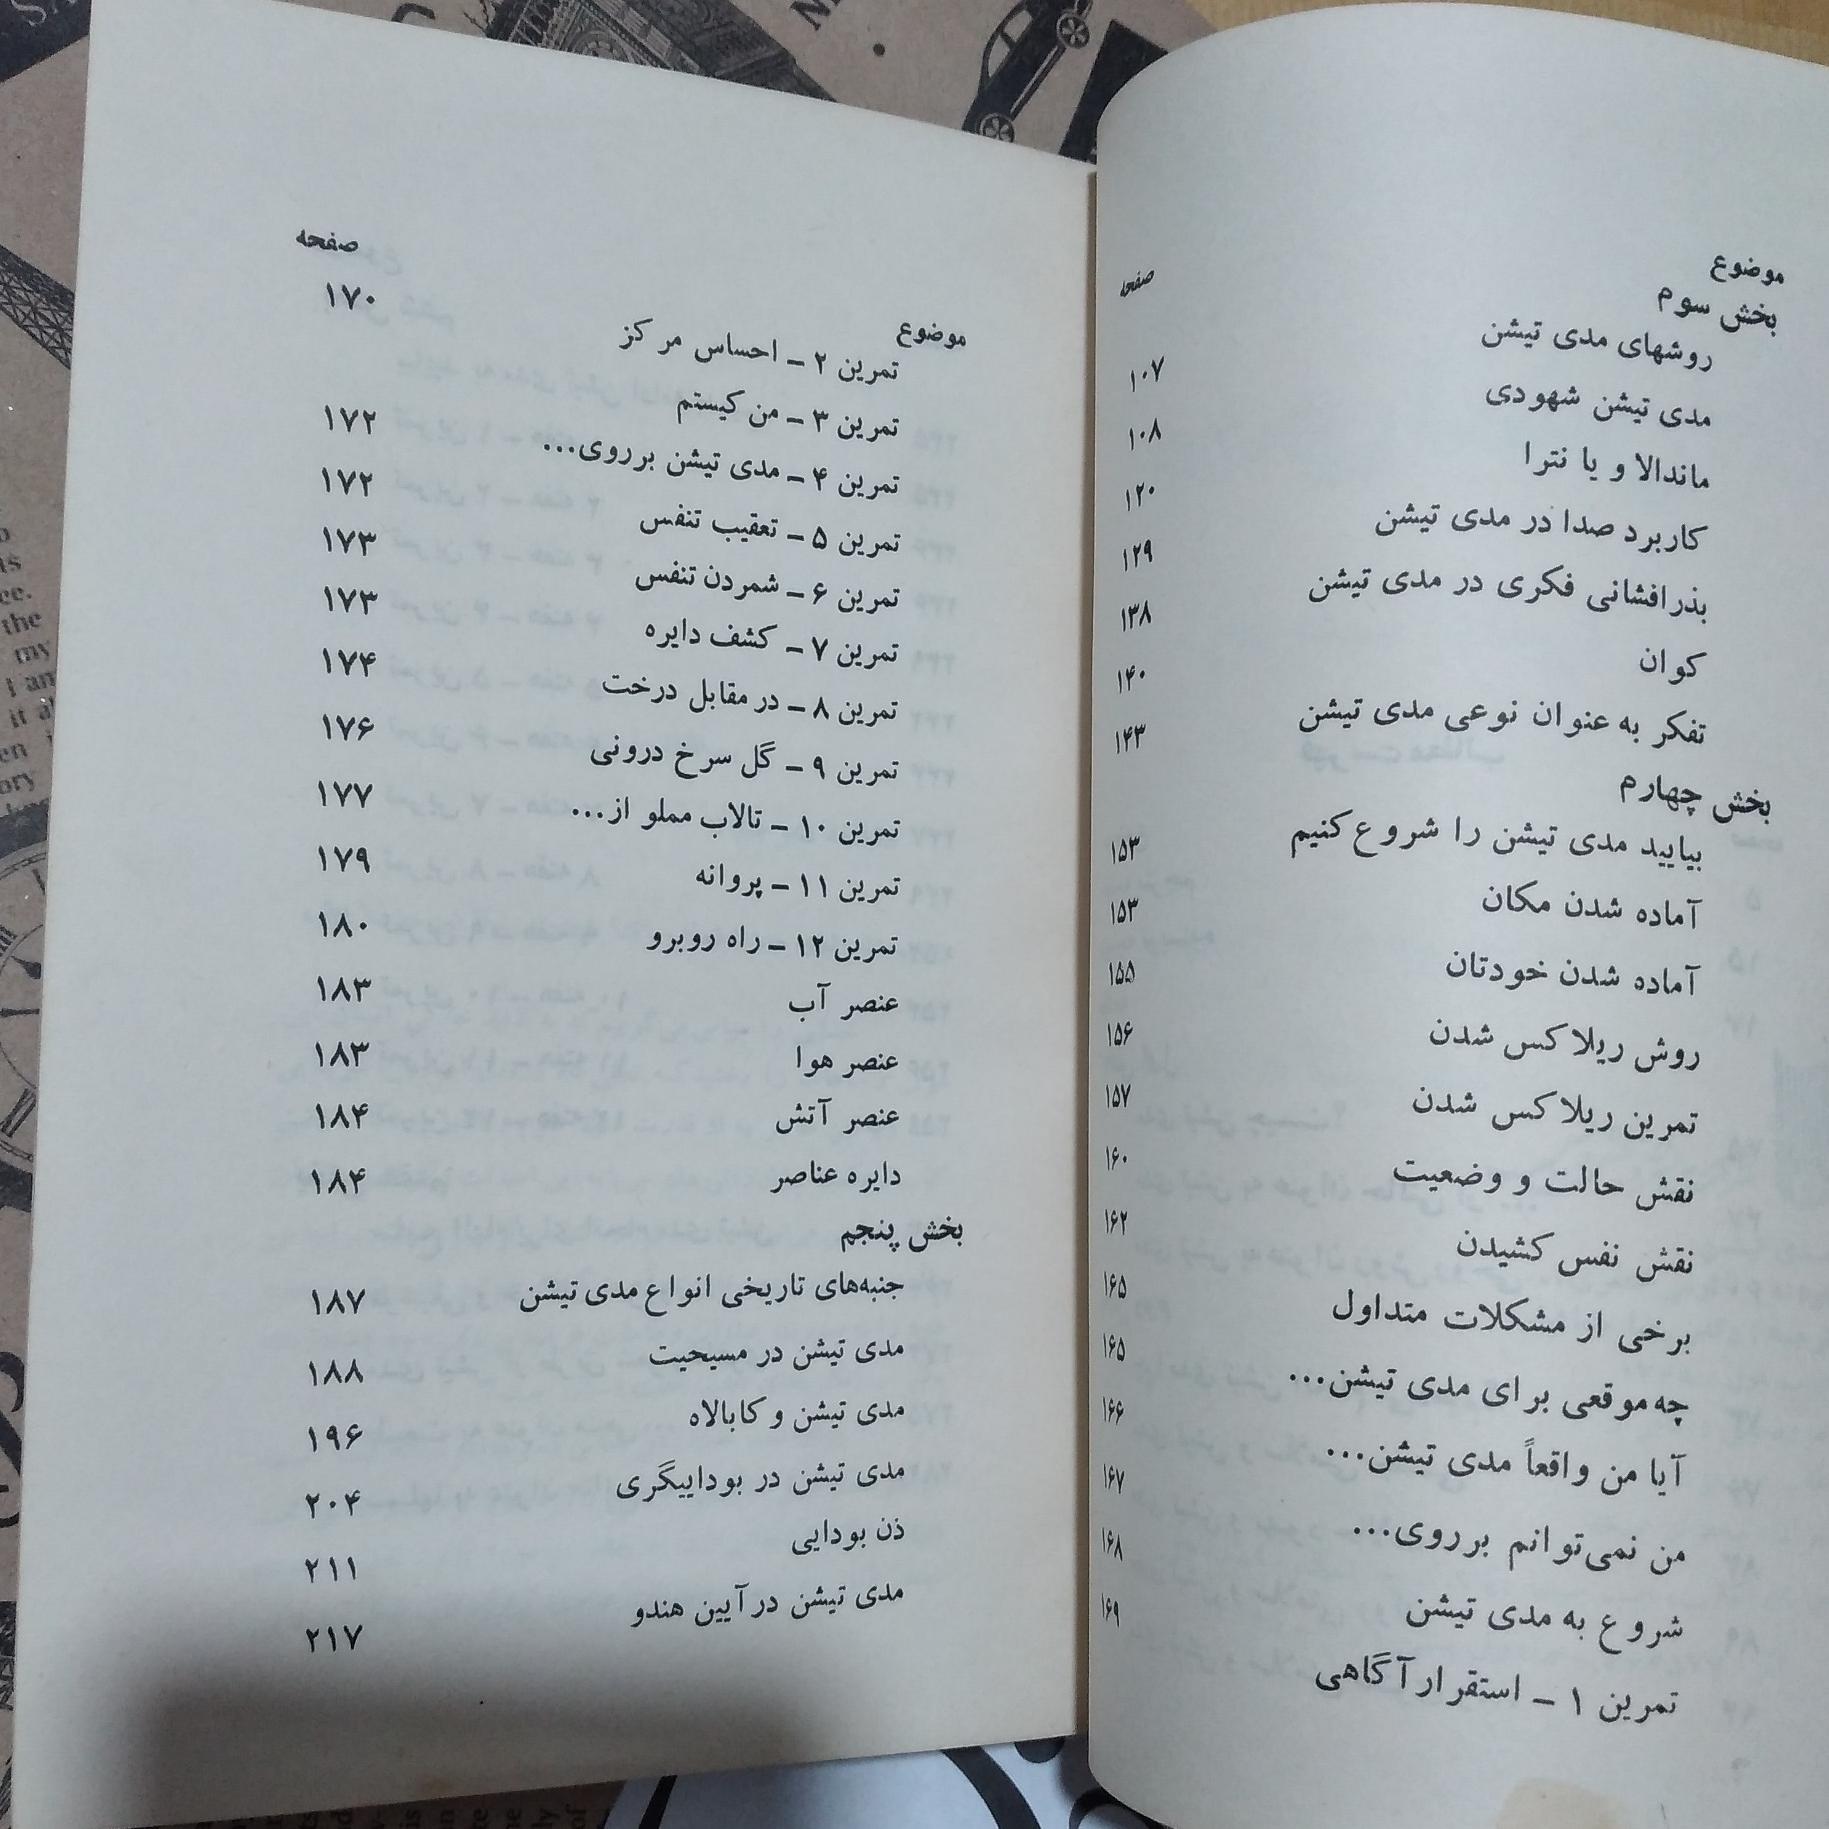 موضوع صفحه
بخش سوم
روشهای مدی تیشن ۱۰۷
مدی تیشن شهودی ۱۰۸
ماندالا و یا نترا ۱۲۰
کاربرد صدا در مدی تیشن ۱۲۹
بذرافشانی فکری در مدی تیشن ۱۳۸
کوان ۱۴۰
تفکر به عنوان نوعی مدی تیشن ۱۴۳
بخش چهارم
بیایید مدی تیشن را شروع کنیم ۱۵۳
آماده شدن مکان ۱۵۳
آماده شدن خودتان ۱۵۵
روش ریلاکس شدن ۱۵۶
تمرین ریلاکس شدن ۱۵۷
نقش حالت و وضعیت ۱۶۰
نقش نفس کشیدن ۱۶۲
برخی از مشکلات متداول ۱۶۵
چه موقعی برای مدی تیشن... ۱۶۵
آیا من واقعاً مدی تیشن... ۱۶۶
من نمی‌توانم برروی... ۱۶۷
شروع به مدی تیشن ۱۶۸
تمرین ۱ ـ استقرار آگاهی ۱۶۹
موضوع صفحه
تمرین ۲ ـ احساس مرکز ۱۷۰
تمرین ۳ ـ من کیستم
تمرین ۴ ـ مدی تیشن برروی... ۱۷۲
تمرین ۵ ـ تعقیب تنفس ۱۷۲
تمرین ۶ ـ شمردن تنفس ۱۷۳
تمرین ۷ ـ کشف دایره ۱۷۳
تمرین ۸ ـ در مقابل درخت ۱۷۴
تمرین ۹ ـ گل سرخ درونی ۱۷۶
تمرین ۱۰ ـ تالاب مملو از... ۱۷۷
تمرین ۱۱ ـ پروانه ۱۷۹
تمرین ۱۲ ـ راه روبرو ۱۸۰
عنصر آب ۱۸۳
عنصر هوا ۱۸۳
عنصر آتش ۱۸۴
دایره عناصر ۱۸۴
بخش پنجم
جنبه‌های تاریخی انواع مدی تیشن ۱۸۷
مدی تیشن در مسیحیت ۱۸۸
مدی تیشن و کابالاه ۱۹۶
مدی تیشن در بوداییگری ۲۰۴
ذن بودایی ۲۱۱
مدی تیشن در آیین هندو ۲۱۷